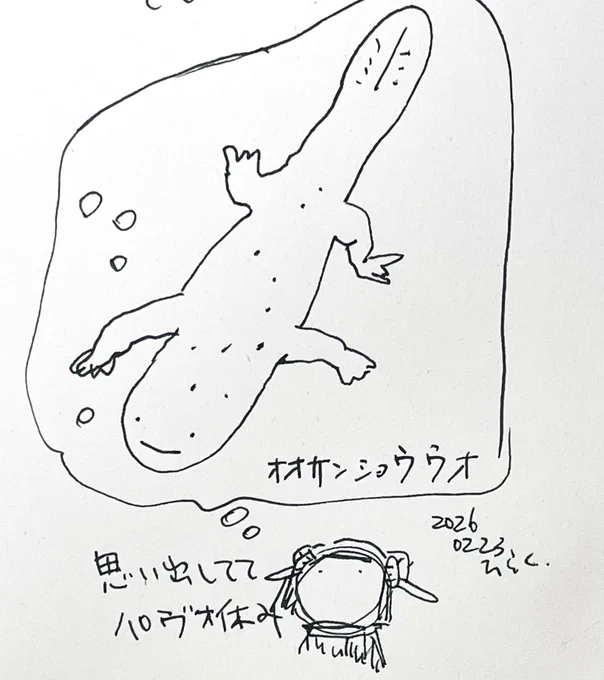 オオサンショウウオ
2026
0223
思い出してて
パロヴオ休み